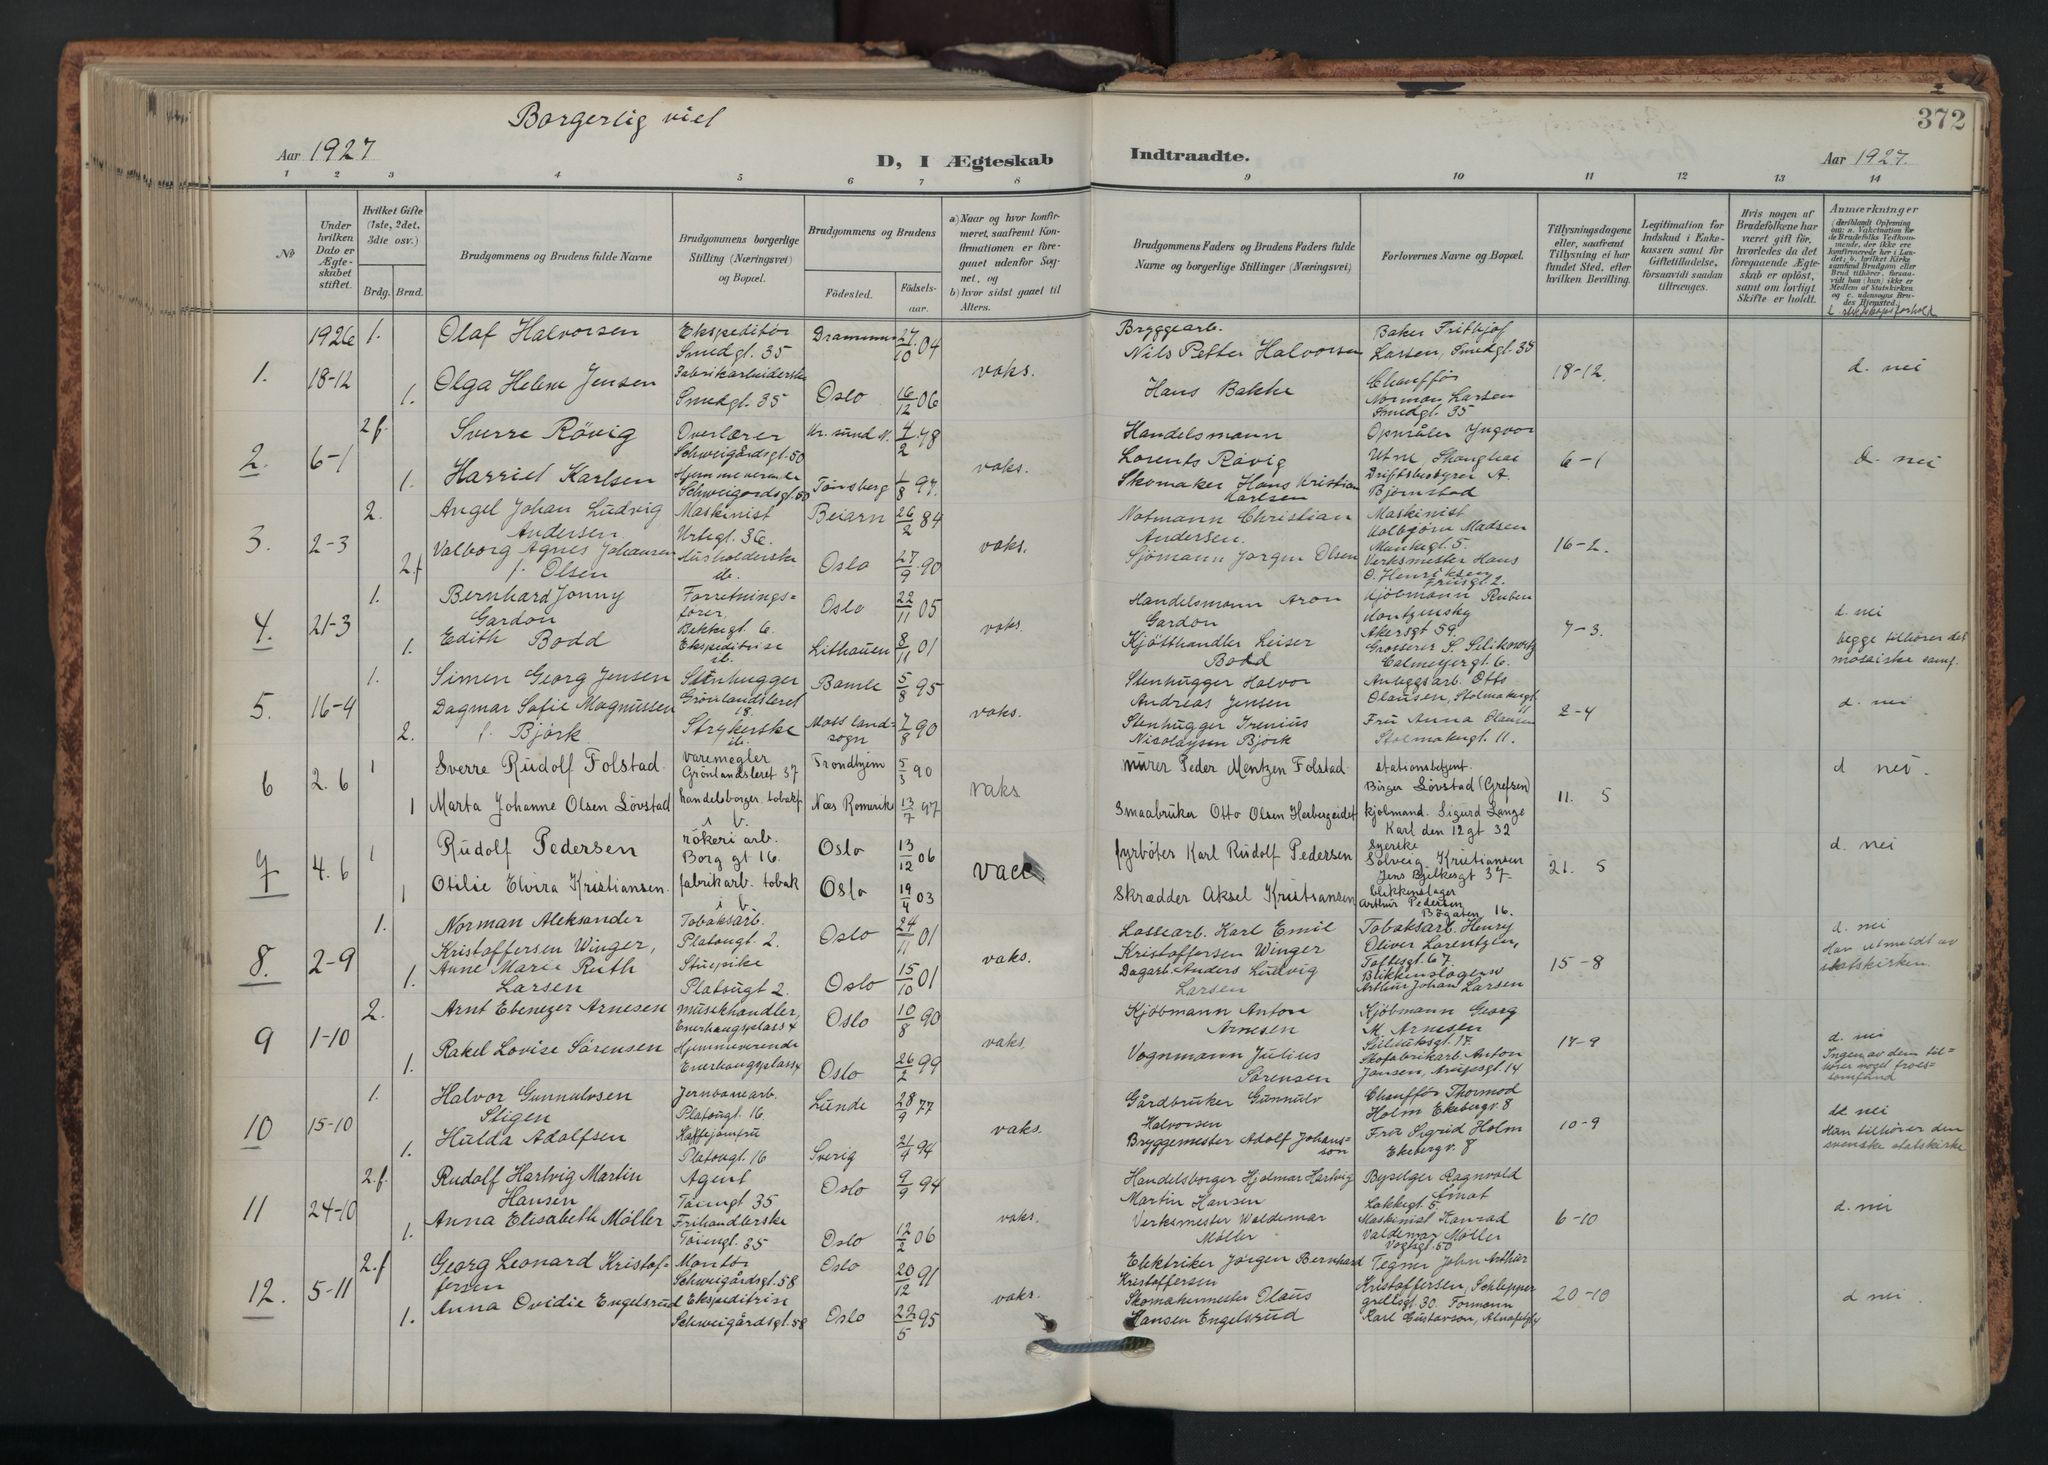 Borgerlig viet
372
Aar 1927
D, I Ægteskab
Indtraadte.
Aar 1927.
1 2 3 4 5 6 7 8 9 10 11 12 13 14
No
Under hvilken Dato er Ægteskabet stiftet.
Hvilket Gifte (1ste, 2det, 3die osv.)
Brdg. Brud.
Brudgommens og Brudens fulde Navne
Brudgommens borgerlige Stilling (Næringsvei) og Bopæl.
Brudgommens og Brudens
Födested. Födselsaar.
a) Naar og hvor konfirmeret, saafremt Konfirmationen er foregaaet udenfor Sognet, og
b) hvor sidst gaaet til Alters.
Brudgommens Faders og Brudens Faders fulde Navne og borgerlige Stillinger (Næringsvei)
Forlovernes Navne og Bopæl.
Tillysningsdagene eller, saafremt Tillysning ei har fundet Sted, efter hvilken Bevilling.
Legitimation for Indskud i Enkekassen samt for Giftetilladelse, forsaavidt saadan tiltrænges.
Hvis nogen af Brudefolkene har været gift för, hvorledes da det foregaaende Ægteskab er oplöst, samt om lovligt Skifte er holdt.
Anmærkninger
1926 1. Olaf Halvorsen Ekspeditør Smedgt. 35 Drammen 27/10 04 Bryggearb. Nils Petter Halvorsen Baker Frithjof Larsen, Smedgt. 35
1. 18-12 1. Olga Helene Jensen Fabrikarbeiderske Smedgt. 35 Oslo 16/12 06 vaks. Hans Bakke Chauffør Norman Larsen Smedgt. 35 18-12. d. nei
2 f. Sverre Rövig Overlærer Schweigårdsgt. 50 Kr. sund N. 4/2 78 Handelsmann Lorents Rövig Opmåler Yngvor Utne Skanghai
2. 6-1 1. Harriet Karlsen Hjemmeværende Schweigårdsgt. 50 Tønsberg 1/8 97. vaks. Skomaker Hans Kristian Karlsen Driftsbestyrer A. Bjørnstad 6-1 d. nei
2. Angel Johan Ludvig Andersen Maskinist Urtegt. 36. Beiarn 26/2 84 Notmann Christian Andersen. Maskinist Madsen Munkegt. 5.
3. 2-3 2 f Valborg Agnes Johansen f. Olsen Husholderske ib. Oslo 27/9 90 vaks. Sjömann Jørgen Olsen Verksmester Hans O. Henriksen 16-2.
1. Bernhard Jonny Gordon Forretningsfører, Bekkegt. 6. Oslo 22/11 05 Handelsmann Aron Gordon Kjöbmann Ruben Akersgt 59.
4. 21-3 1. Edith Bodd Ekspeditrise ib. Lithauen 8/11 01 vaks. Kjötthandler Leiser Bodd Grosserer S. Selikowitz Calmeyergt. 6. 7-3. d. nei begge tilhører det mosaiske samf.
1. Simen Georg Jensen Stenhugger Grønlandsleret 18. Bamle 5/8 95 Stenhugger Halvor Andreas Jensen Anleggsarb. Otto Olausen, Stolmakergt. 11
5. 16-4 2. Dagmar Sofie Magnussen f. Björk Strykerske ib. Moss landsogn 7/8 90 vaks. Stenhugger Irenius Nicolaysen Björk Fru Anna Olausen Stolmakergt. 11. 2-4 d. nei
1 Sverre Rudolf Folstad varemegler Grönlandsleret 37 Trondhjem 5/3 90 murer Peder Mentzen Folstad stationsbetjent. Birger Lövstad (Grefsen)
6 2. 6 1 Marta Johanne Olsen Lövstad handelsborger. tobakf. Næs Romerike 13/7 97 vaks Smaabruker Otto Olsen Herbergeidet kjolmand. Sigurd Lange Karl den 12 gt 32 11. 5 d nei.
1 Rudolf Pedersen rökeri arb. Borg gt 16. Oslo 13/12 06 fyrböter Karl Rudolf Pedersen Syerske Solveig Kristiansen Jens Bjelkesgt 37
7 4. 6 1 Otilie Elvira Kristiansen. fabrikarb. tobak Oslo 19/4 03 vacc Skrædder Aksel Kristiansen blikkenslager Arthur Pedersen 16. 21. 5 d. nei
1. Norman Aleksander Kristoffersen Winger, Tobaksarb. Platougt 2. Oslo 24/11 01 Lossearb. Karl Emil Kristoffersen Winger Tobaksarb. Henry Oliver Lorentzen, Toftesgt. 67.
8. 2-9 1. Anne Marie Ruth Larsen Stuepike Platougt 2. Oslo 15/10 01 vaks. Dagarb. Anders Ludvig Larsen Blikkenslager Arthur Johan Larsen 15-8 d. nei Han utmeldt av statskirken.
2. Arnt Ebenezer Arnesen musikhandler, Enerhaugsplass 4 Oslo 10/8 90 Kjöbmann Anton Arnesen Kjöbmann Georg M. Arnesen
9 1-10 1. Rakel Lovise Sørensen Hjemmeværende Enerhaugsplass 4 Oslo 26/2 99 vaks. Vognmann Julius Sørensen Skofabrikarb. Anton Jansen, 17-9 d. nei Ingen av dem tilhører noget troessamfund
1. Halvor Gunnulvsen Stigen Jernbanearb. Platougt. 16 Lunde 28/9 77 Gårdbruker Gunnulv Halvorsen Chauffør Thormod Holm Ekebergv. 8
10 15-10 1. Hulda Adolfsen Kaffejomfru Platougt. 16 Sverig 21/4 94 vaks. Bryggemester Adolf Johansson Fru Sigrid Holm Ekebergv. 8 10-9 d. nei Hun tilhører den svenske statskirke
2. f. Rudolf Hartvig Martin Hansen Agent Tøiengt 35 Oslo 9/9 94 Handelsborger Hjalmar Hartvig Martin Hansen Byselger Ragnvald Lakkegt. 5.
11 24-10 1. Anna Elisabeth Møller Frihandlerske Tøiengt. 35 Oslo 12/2 06 vaks. Verksmester Waldemar Møller Maskinist Konrad Valdemar Møller Vogtsgt. 50 6-10 d. nei
2. f Georg Leonard Kristoffersen Montör Schweigårdsgt. 58 Oslo 20/12 91 Elektriker Jørgen Bernhard Kristoffersen Tegner John Arthur Kristoffersen, Schleppegrellsgt. 30.
12. 5-11 1. Anna Ovidie Engelsrud Ekspeditrise Schweigårdsgt. 58 Oslo 22/5 95 vaks. Skomakermester Olaus Hansen Engelsrud Formann Karl Gustavson, 20-10 d nei